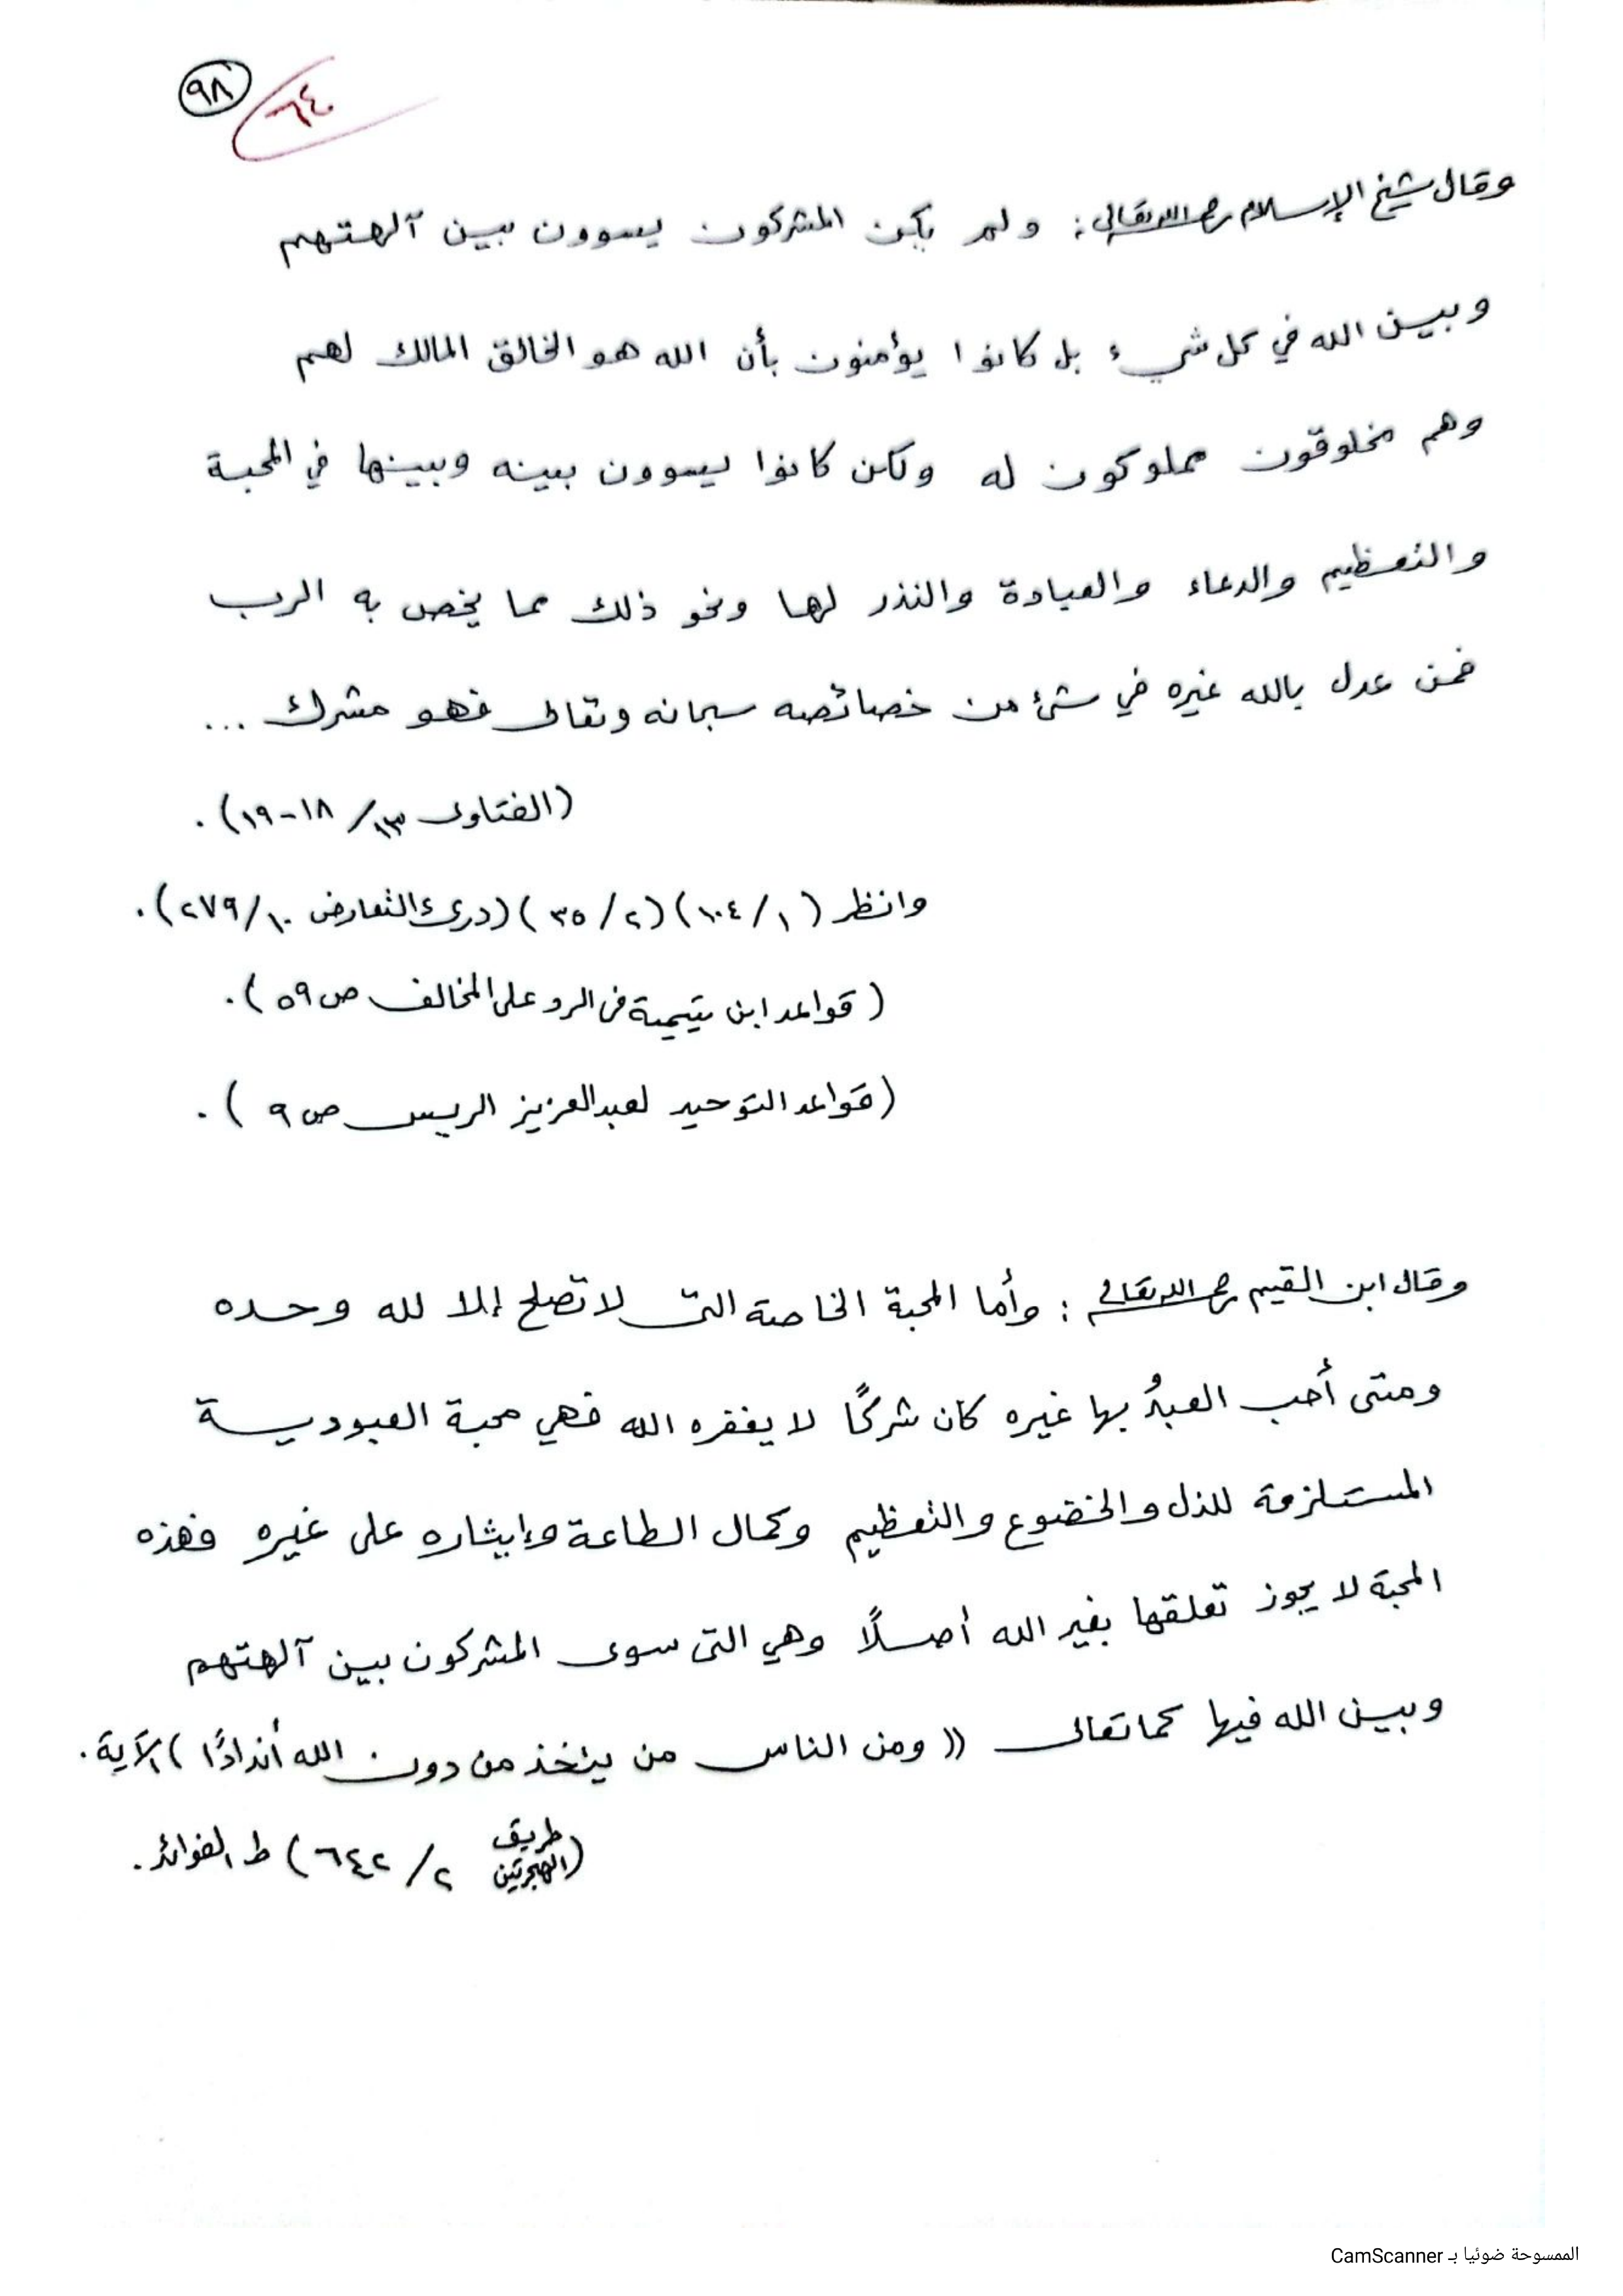 ٩٨
٦٤
وقال شيخ الإسلام رحمه الله تعالى : ولم يكن المشركون يسوون بين آلهتهم
وبين الله في كل شيء بل كانوا يؤمنون بأن الله هو الخالق المالك لهم
وهم مخلوقون مملوكون له ولكن كانوا يسوون بينه وبينها في المحبة
والتعظيم والدعاء والعبادة والنذر لها ونحو ذلك مما يخص به الرب
فمن عدل بالله غيره في شئ من خصائصه سبحانه وتعالى فهو مشرك ...
(الفتاوى ١٣/ ١٨-١٩) .
وانظر (١/ ١٠٤) (٢/ ٣٥) (درء التعارض ١٠/ ٢٧٩) .
(قواعد ابن تيمية في الرد على المخالف ص ٥٩) .
(قواعد التوحيد لعبدالعزيز الريس ص ٩) .
وقال ابن القيم رحمه الله تعالى : وأما المحبة الخاصة التي لا تصلح إلا لله وحده
ومتى أحب العبدُ بها غيره كان شركًا لا يغفره الله فهي محبة العبودية
المستلزمة للذل والخضوع والتعظيم وكمال الطاعة وإيثاره على غيره فهذه
المحبة لا يجوز تعلقها بغير الله أصلًا وهي التى سوى المشركون بين آلهتهم
وبين الله فيها كما تعالى (( ومن الناس من يتخذ من دون الله أندادًا ) الآية .
(طريق الهجرتين ٢/ ٦٤٢) ط الفوائد .
الممسوحة ضوئيا بـ CamScanner